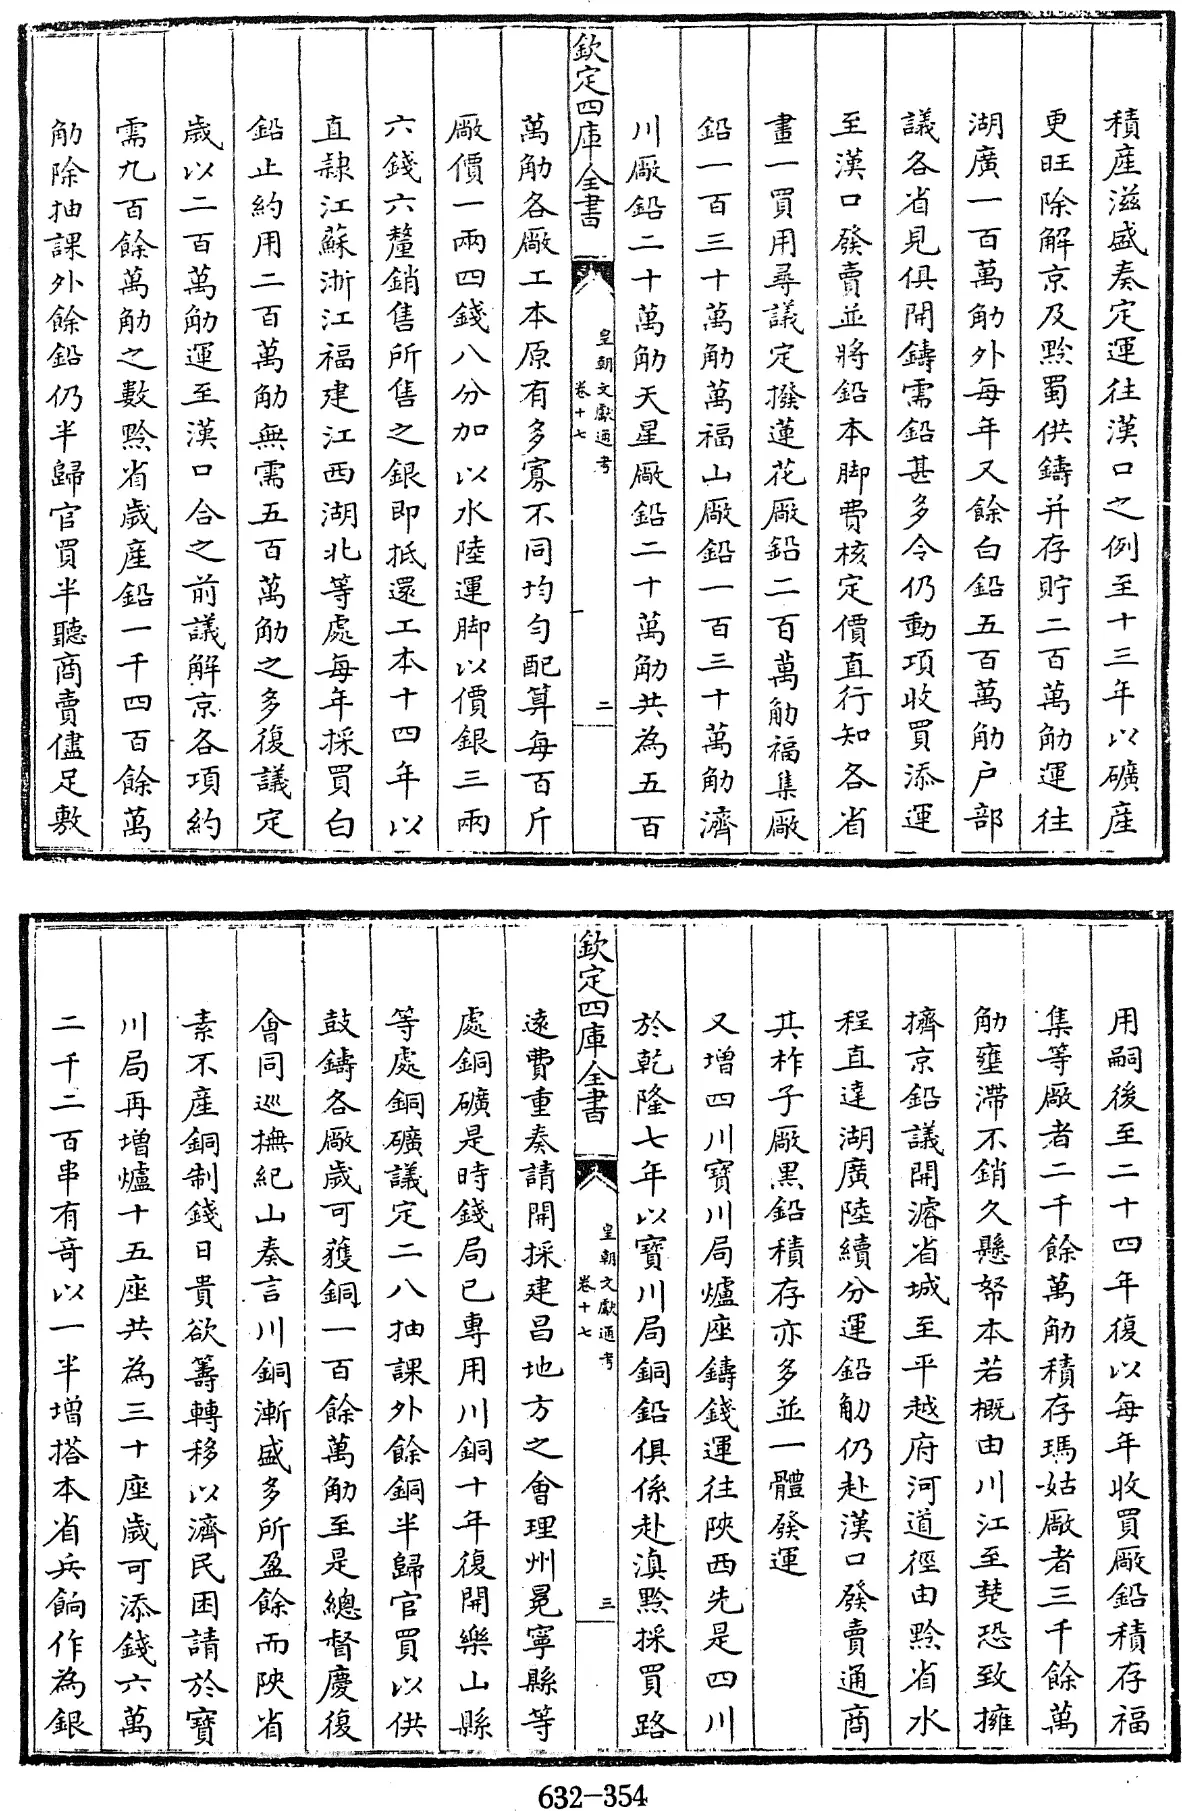 積産滋盛奏定運往漢口之例至十三年以礦産
更旺除解京及黔蜀供鑄并存貯二百萬觔運往
湖廣一百萬觔外每年又餘白鉛五百萬觔户部
議各省見俱開鑄需鉛甚多令仍動項收買添運
至漢口發賣並將鉛本脚費核定價直行知各省
畫一買用尋議定撥蓮花厰鉛二百萬觔福集厰
鉛一百三十萬觔萬福山厰鉛一百三十萬觔濟
川厰鉛二十萬觔天星厰鉛二十萬觔共為五百
欽定四庫全書
皇朝文獻通考
卷十七
二
萬觔各厰工本原有多寡不同均勻配算每百斤
厰價一兩四錢八分加以水陸運脚以價銀三兩
六錢六釐銷售所售之銀即抵還工本十四年以
直隷江蘇浙江福建江西湖北等處每年採買白
鉛止約用二百萬觔無需五百萬觔之多復議定
歲以二百萬觔運至漢口合之前議解京各項約
需九百餘萬觔之數黔省歲産鉛一千四百餘萬
觔除抽課外餘鉛仍半歸官買半聽商賣儘足敷
用嗣後至二十四年復以每年收買厰鉛積存福
集等厰者二千餘萬觔積存瑪姑厰者三千餘萬
觔壅滯不銷久懸帑本若概由川江至楚恐致擁
擠京鉛議開濬省城至平越府河道徑由黔省水
程直達湖廣陸續分運鉛觔仍赴漢口發賣通商
其柞子厰黒鉛積存亦多並一體發運
又增四川寶川局爐座鑄錢運往陝西先是四川
於乾隆七年以寶川局銅鉛俱係赴滇黔採買路
欽定四庫全書
皇朝文獻通考
卷十七
三
遠費重奏請開採建昌地方之會理州冕寧縣等
處銅礦是時錢局已專用川銅十年復開樂山縣
等處銅礦議定二八抽課外餘銅半歸官買以供
鼓鑄各厰歲可獲銅一百餘萬觔至是總督慶復
會同巡撫紀山奏言川銅漸盛多所盈餘而陝省
素不産銅制錢日貴欲籌轉移以濟民困請於寶
川局再增爐十五座共為三十座歲可添錢六萬
二千二百串有奇以一半增搭本省兵餉作為銀
632-354